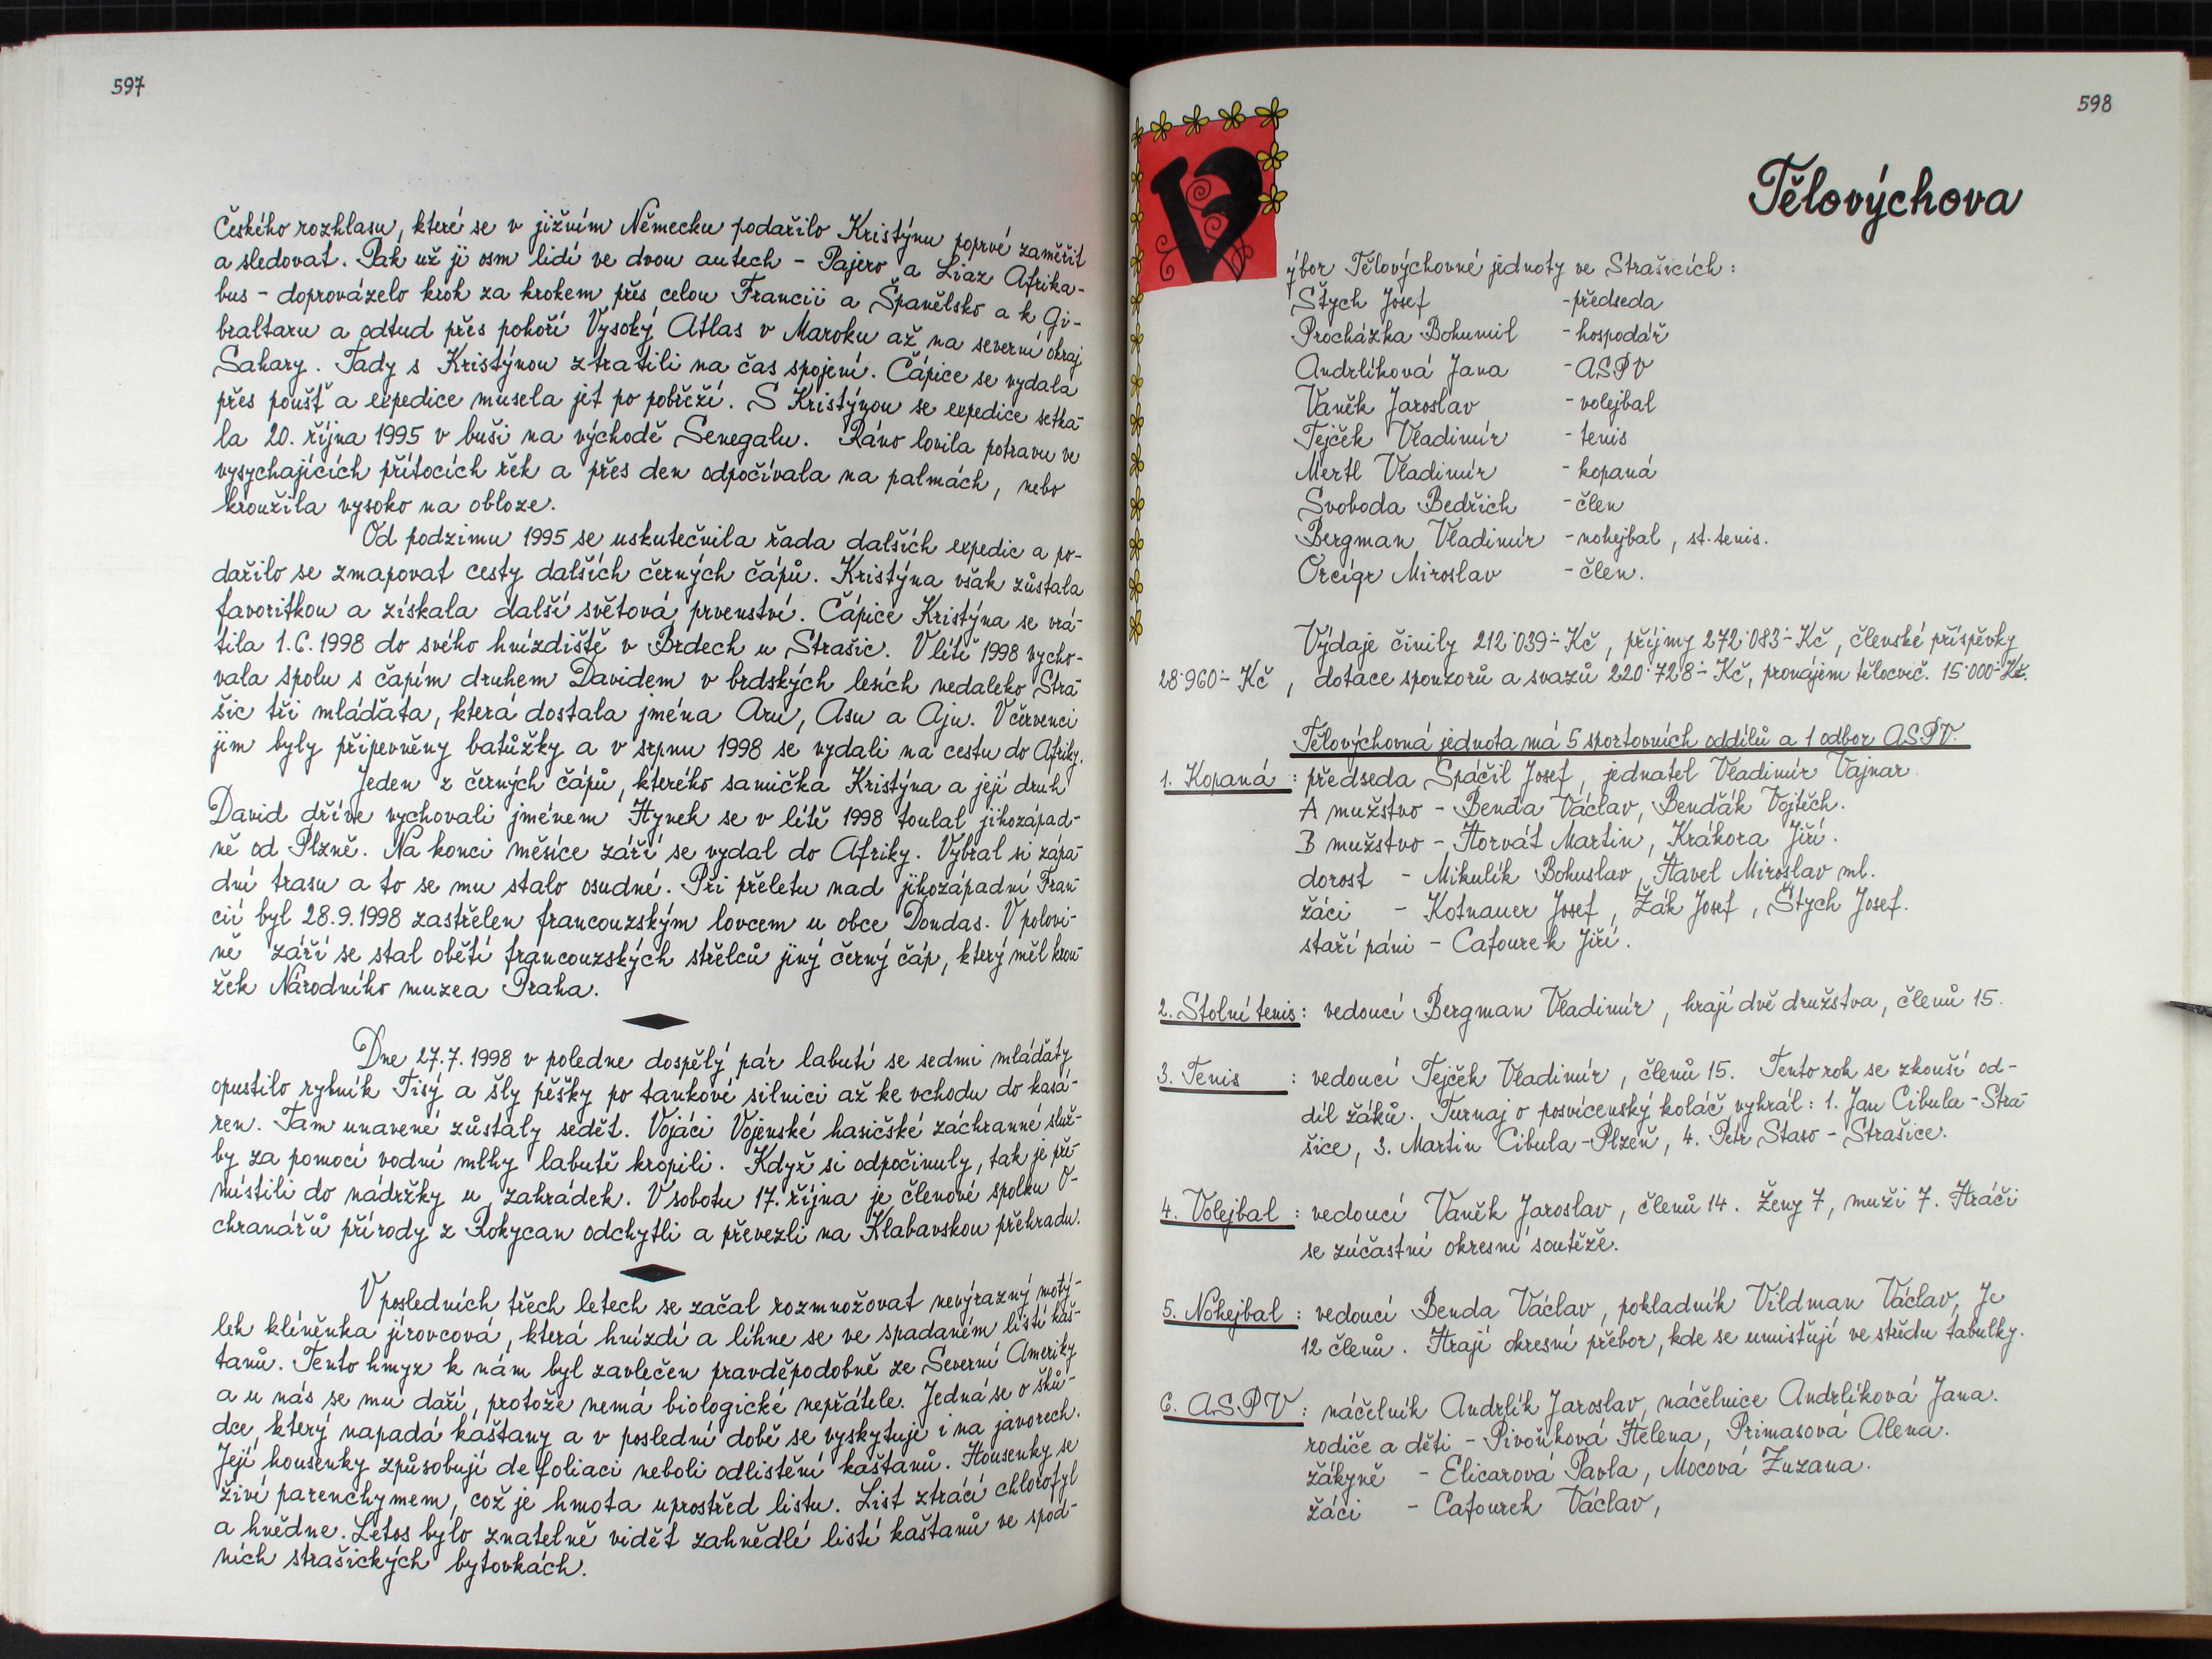 597
českého rozhlasu, které se v jižním Německu podařilo Kristýnu poprvé zaměřit
a sledovat. Pak už ji osm lidí ve dvou autech - Pajero a Liaz Afrika-
bus - doprovázelo krok za krokem přes celou Francii a Španělsko a k Gi-
braltaru a odtud přes pohoří Vysoký Atlas v Maroku až na severní okraj
Sahary. Tady s Kristýnou ztratili na čas spojení. Čápice se vydala
přes poušť a expedice musela jet po pobřeží. S Kristýnou se expedice setka-
la 20. října 1995 v buši na východě Senegalu. Ráno lovila potravu ve
vysychajících přítocích řek a přes den odpočívala na palmách, nebo
kroužila vysoko na obloze.
Od podzimu 1995 se uskutečnila řada dalších expedic a po-
dařilo se zmapovat cesty dalších černých čápů. Kristýna však zůstala
favoritkou a získala další světová prvenství. Čápice Kristýna se vrá-
tila 1.6.1998 do svého hnízdiště v Brdech u Strašic. V létě 1998 vycho-
vala spolu s čapím druhem Davidem v brdských lesích nedaleko Stra-
šic tři mláďata, která dostala jména Aru, Asu a Aju. V červenci
jim byly připevněny batůžky a v srpnu 1998 se vydali na cestu do Afriky.
Jeden z černých čápů, kterého samička Kristýna a její druh
David dříve vychovali jménem Hynek se v létě 1998 toulal jihozápad-
ně od Plzně. Na konci měsíce září se vydal do Afriky. Vybral si zápa-
dní trasu a to se mu stalo osudné. Při přeletu nad jihozápadní Fran-
cií byl 28.9.1998 zastřelen francouzským lovcem u obce Dondas. V polovi-
ně září se stal obětí francouzských střelců jiný černý čáp, který měl krou-
žek Národního muzea Praha.
Dne 27.7.1998 v poledne dospělý pár labutí se sedmi mláďaty
opustilo rybník Tisý a šly pěšky po tankové silnici až ke vchodu do kasá-
ren. Tam unavené zůstaly sedět. Vojáci Vojenské hasičské záchranné služ-
by za pomoci vodní mlhy labutě kropili. Když si odpočinuly, tak je pře-
místili do nádržky u zahrádek. V sobotu 17. října je členové spolku O-
chranářů přírody z Rokycan odchytli a převezli na Klabavskou přehradu.
V posledních třech letech se začal rozmnožovat nevýrazný motý-
lek klíněnka jírovcová, která hnízdí a líhne se ve spadaném listí kaš-
tanů. Tento hmyz k nám byl zavlečen pravděpodobně ze Severní Ameriky
a u nás se mu daří, protože nemá biologické nepřátele. Jedná se o šků-
dce, který napadá kaštany a v poslední době se vyskytuje i na javorech.
Její housenky způsobují defoliaci neboli odlistění kaštanů. Housenky se
živí parenchymem, což je hmota uprostřed listu. List ztrácí chlorofyl
a hnědne. Letos bylo znatelně vidět zahnědlé listí kaštanů ve spod-
ních strašických bytovkách.
598
Tělovýchova
Výbor Tělovýchovné jednoty ve Strašicích:
Štych Josef - předseda
Procházka Bohumil - hospodář
Andrlíková Jana - ASPV
Vaněk Jaroslav - volejbal
Tejček Vladimír - tenis
Mertl Vladimír - kopaná
Svoboda Bedřich - člen
Bergman Vladimír - nohejbal, st. tenis.
Orcígr Miroslav - člen.
Výdaje činily 212˙039.- Kč, příjmy 272˙083.- Kč, členské příspěvky
28˙960.- Kč, dotace sponzorů a svazů 220˙728.- Kč, pronájem tělocvič. 15˙000.- Kč.
Tělovýchovná jednota má 5 sportovních oddílů a 1 odbor ASPV.
1. Kopaná : předseda Spáčil Josef, jednatel Vladimír Vajnar.
A mužstvo - Benda Václav, Bendčák Vojtěch.
B mužstvo - Horvát Martin, Krákora Jiří.
dorost - Mikulík Bohuslav, Havel Miroslav ml.
žáci - Kotnauer Josef, Žák Josef, Štych Josef.
staří páni - Cafourek Jiří.
2. Stolní tenis : vedoucí Bergman Vladimír, hrají dvě družstva, členů 15.
3. Tenis : vedoucí Tejček Vladimír, členů 15. Tento rok se zkouší od-
díl žáků. Turnaj o posvícenský koláč vyhrál: 1. Jan Cibula - Stra-
šice, 3. Martin Cibula - Plzeň, 4. Petr Staso - Strašice.
4. Volejbal : vedoucí Vaněk Jaroslav, členů 14. Ženy 7, muži 7. Hráči
se zúčastní okresní soutěže.
5. Nohejbal : vedoucí Benda Václav, pokladník Vildman Václav, Je
12 členů. Hrají okresní přebor, kde se umisťují ve středu tabulky.
6. ASPV : náčelník Andrlík Jaroslav, náčelnice Andrlíková Jana.
rodiče a děti - Pivoňková Helena, Primasová Alena.
žákyně - Elicarová Pavla, Mocová Zuzana.
žáci - Cafourek Václav,